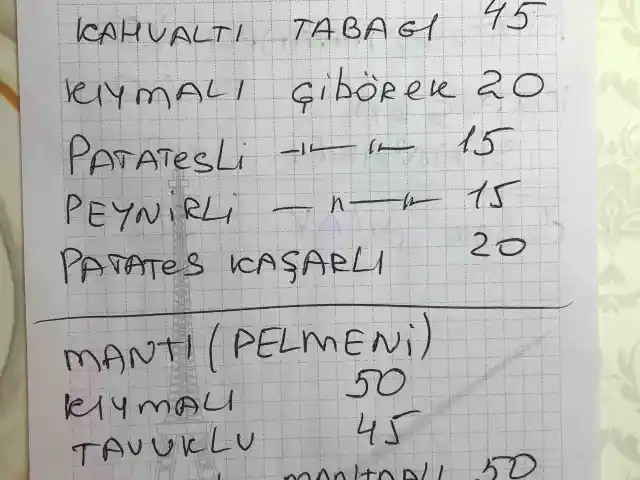 KAHVALTI TABAGI 45
KIYMALI ÇİBÖREK 20
PATATESLİ —"— "— 15
PEYNİRLİ —"— "— 15
PATATES KAŞARLI 20
MANTI (PELMENİ)
KIYMALI 50
TAVUKLU 45
MANTARLI 50